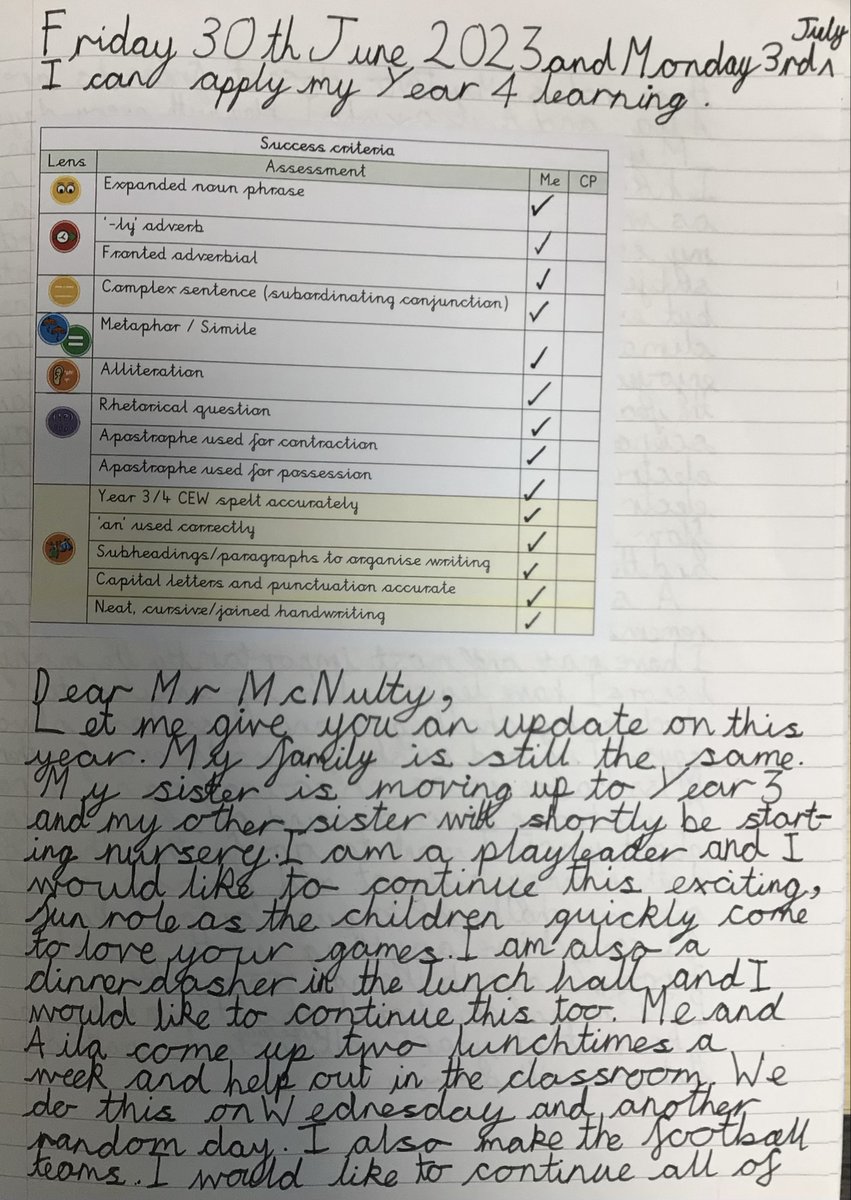 Friday 30th June 2023 and Monday 3rd July
I can apply my Year 4 learning.
Success criteria
Lens Assessment Me CP
Expanded noun phrase ✓
'-ly' adverb ✓
Fronted adverbial ✓
Complex sentence (subordinating conjunction) ✓
Metaphor / Simile ✓
Alliteration ✓
Rhetorical question ✓
Apostrophe used for contraction ✓
Apostrophe used for possession ✓
Year 3/4 CEW spelt accurately ✓
'an' used correctly ✓
Subheadings/paragraphs to organise writing ✓
Capital letters and punctuation accurate ✓
Neat, cursive/joined handwriting ✓
Dear Mr McNulty,
Let me give you an update on this
year. My family is still the same.
My sister is moving up to Year 3
and my other sister will shortly be start-
ing nursery. I am a playleader and I
would like to continue this exciting,
fun role as the children quickly come
to love your games. I am also a
dinner dasher in the lunch hall and I
would like to continue this too. Me and
Aila come up two lunchtimes a
week and help out in the classroom. We
do this on Wednesday and another
random day. I also make the football
teams. I would like to continue all of